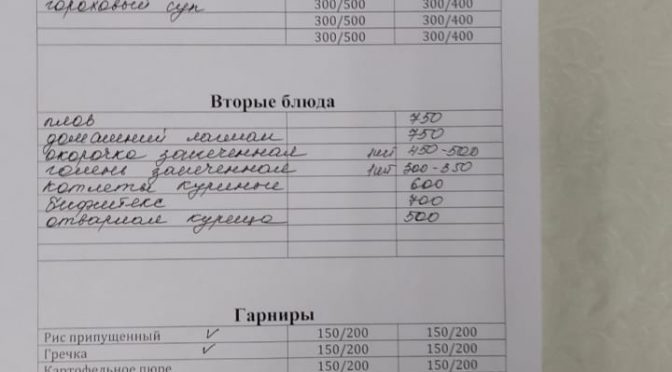 гороховый суп 300/500 300/400
300/500 300/400
300/500 300/400
Вторые блюда
плов 750
домашний лагман 750
окорочка запеченная 1шт 450-500
голень запеченная 1шт 300-350
котлеты куринные 600
бифштекс 700
отварная курица 500
Гарниры
Рис припущенный ✓ 150/200 150/200
Гречка ✓ 150/200 150/200
Картофельное пюре 150/200 150/200